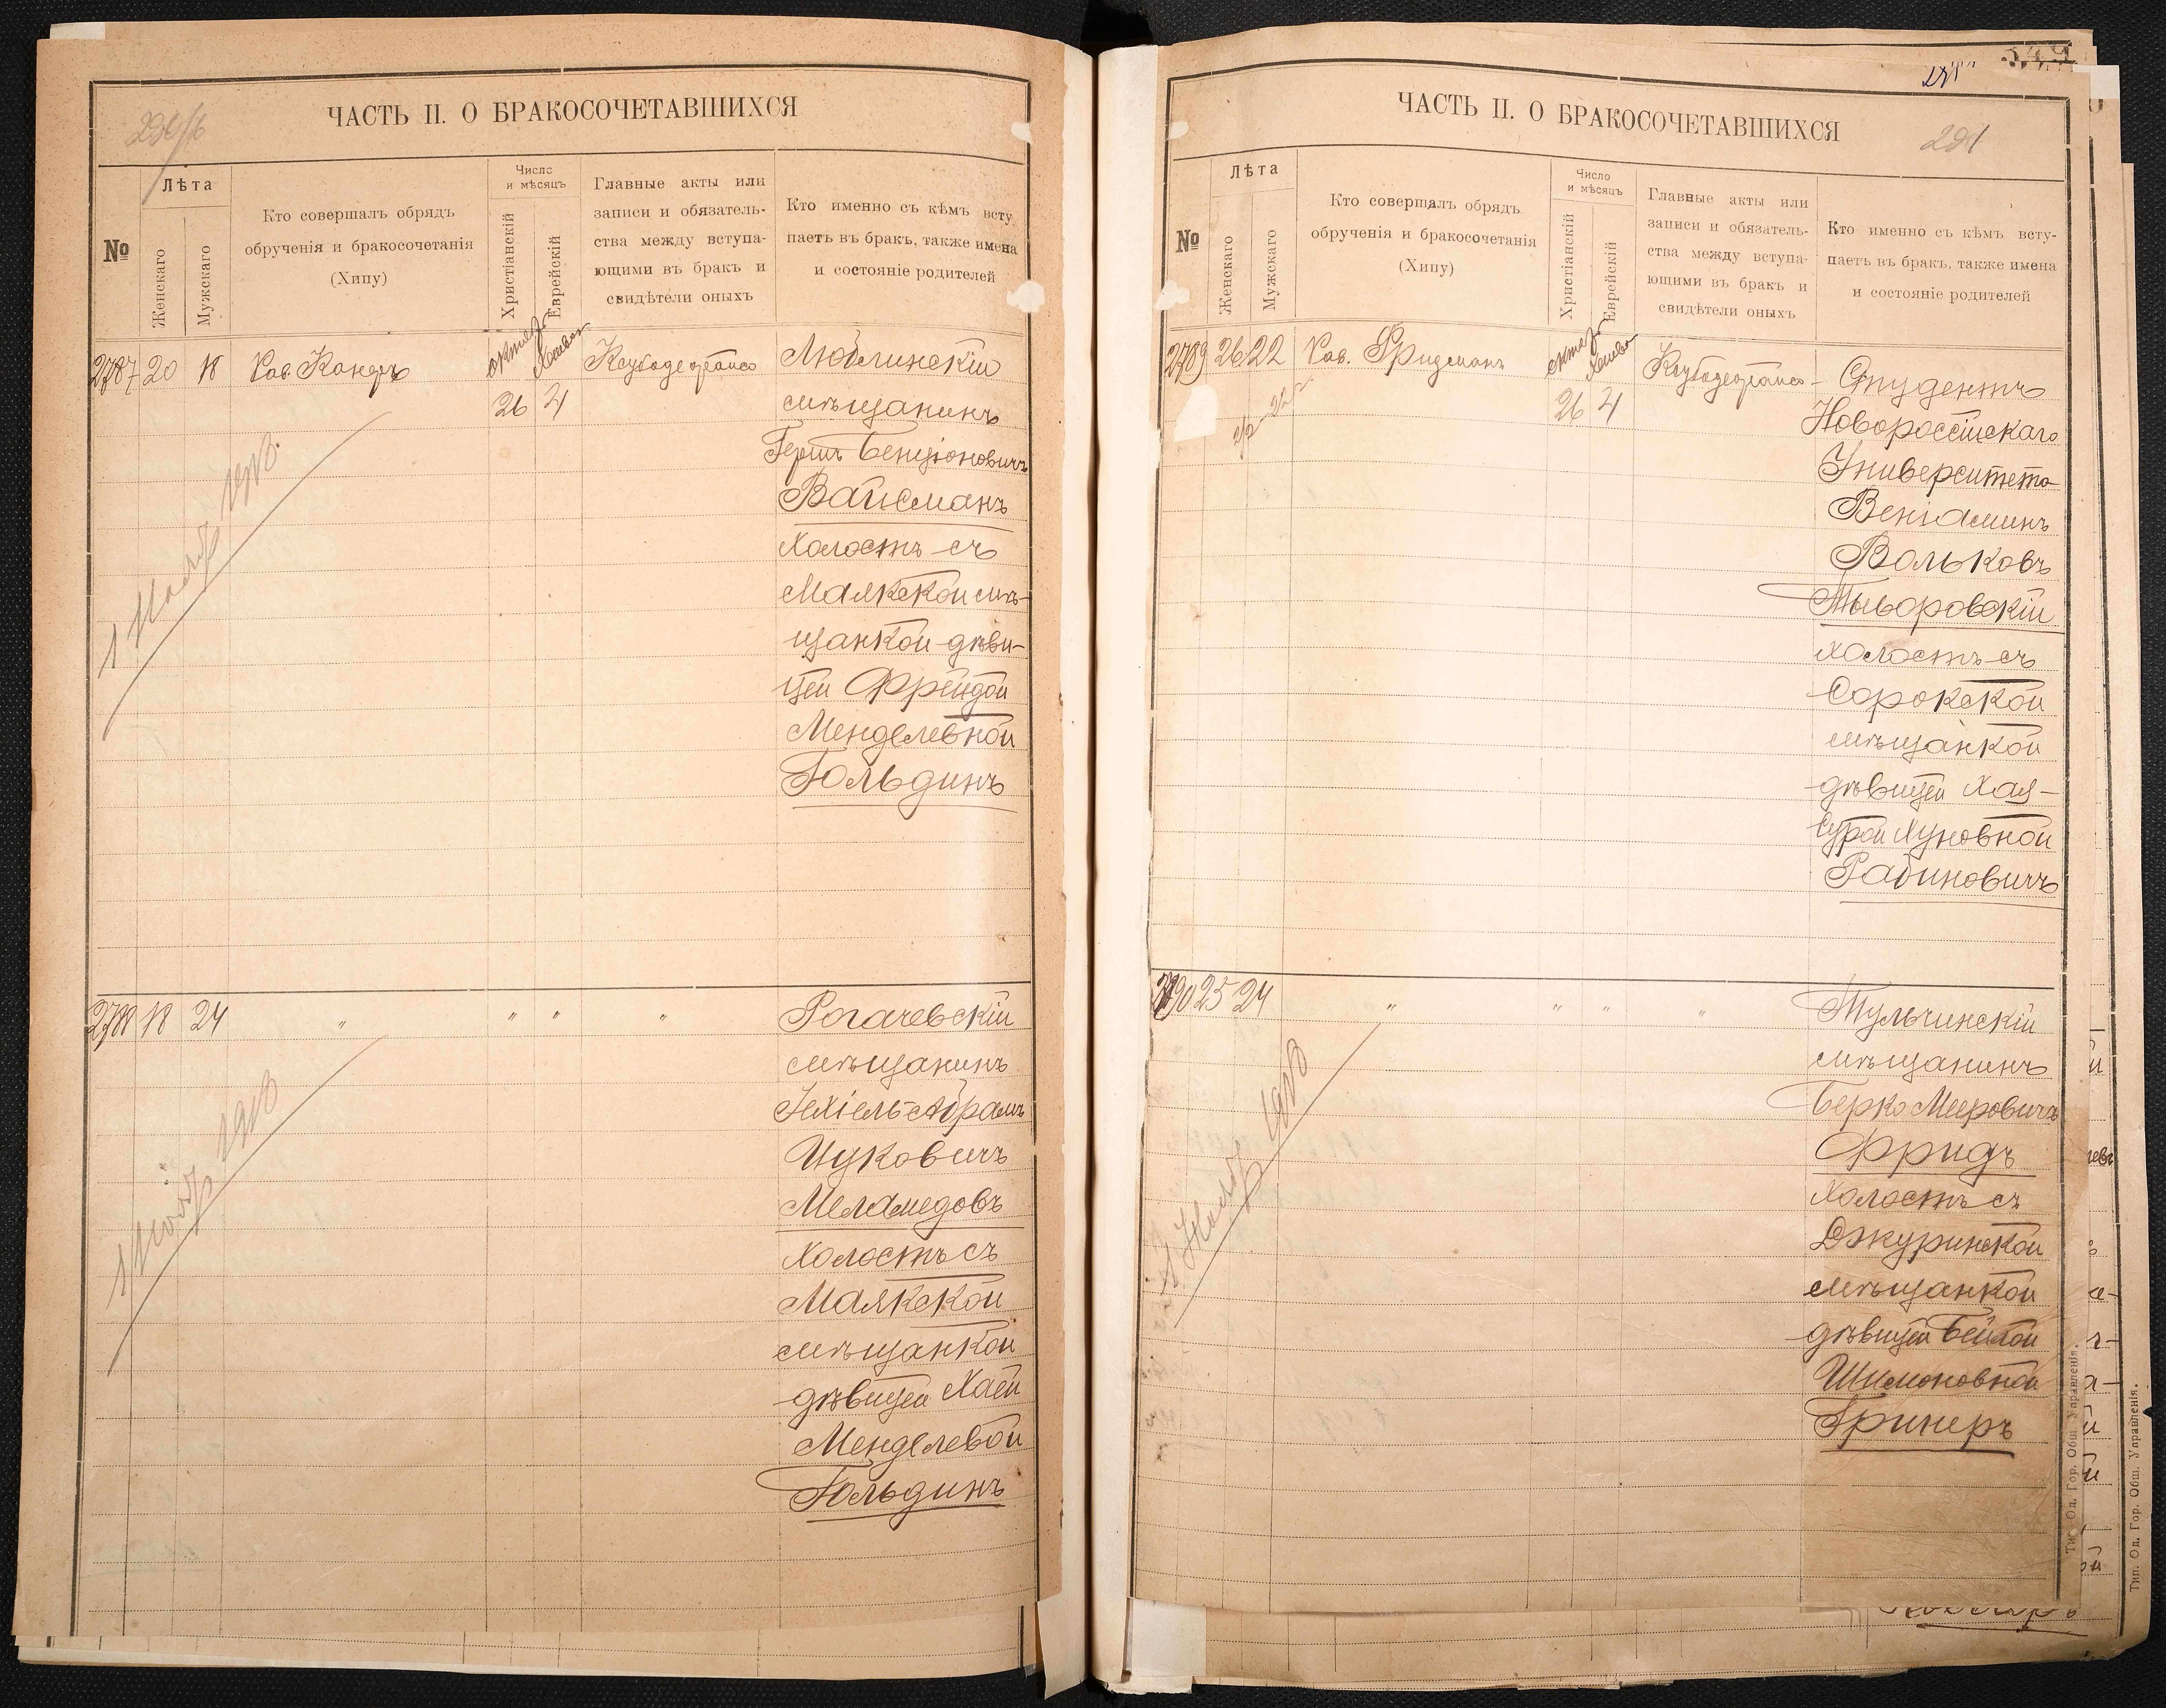 ЧАСТЬ II. О БРАКОСОЧЕТАВШИХСЯ
№
Лѣта
Женскаго
Мужскаго
Кто совершалъ обрядъ
обрученія и бракосочетанія
(Хипу)
Число
и мѣсяцъ
Христіанскій
Еврейскій
Главные акты или
записи и обязатель-
ства между вступа-
ющими въ бракъ и
свидѣтели оныхъ
Кто именно съ кѣмъ всту
паетъ въ бракъ, также имена
и состояніе родителей
2787 20 18
26 21
Люблинскій
мѣщанинъ
Гершъ Бенціоновичъ
Вайсманъ
холостъ съ
Маякской мѣ-
щанкой дѣви-
цей Фрейдой
Менделевной
Гольдинъ
2788 18 24 " " " "
Рогачевскій
мѣщанинъ
Іехіель-Абрамъ
Ицковичъ
Меламедовъ
холостъ съ
Маякской
мѣщанкой
дѣвицей Хаей
Менделевой
Гольдинъ
ЧАСТЬ II. О БРАКОСОЧЕТАВШИХСЯ
291
№
Лѣта
Женскаго
Мужскаго
Кто совершалъ обрядъ
обрученія и бракосочетанія
(Хипу)
Число
и мѣсяцъ
Христіанскій
Еврейскій
Главные акты или
записи и обязатель-
ства между вступа-
ющими въ бракъ и
свидѣтели оныхъ
Кто именно съ кѣмъ всту-
паетъ въ бракъ, также имена
и состояніе родителей
2789 26 22 Рав. Фридманъ
26 21
Студентъ
Новороссійскаго
Университета
Веніаминъ
Вольковъ
Тыворовскій
холостъ съ
Сорокской
мѣщанкой
дѣвицей Хая-
Сурой Хуновной
Рабиновичъ
2790 25 24 " " " "
Тульчинскій
мѣщанинъ
Берко Мееровичъ
Фридъ
холостъ съ
Джуринской
мѣщанкой
дѣвицей Бейлой
Шимоновной
Гринеръ
Тип. Од. Гор. Общ. Управленія.
Тип. Од. Гор. Общ. Управленія.